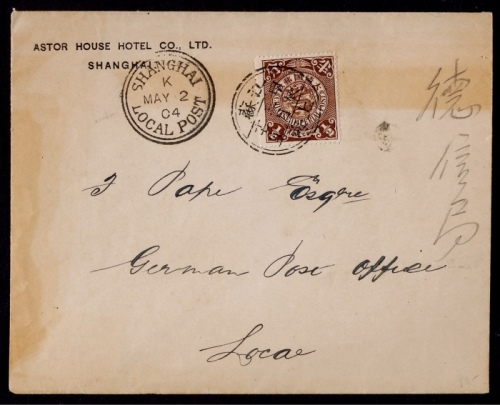 ASTOR HOUSE HOTEL CO., LTD.
SHANGHAI
SHANGHAI
K
MAY 2
04
LOCAL POST
½
½
德信局
J Pape Esqre
German Post Office
Local